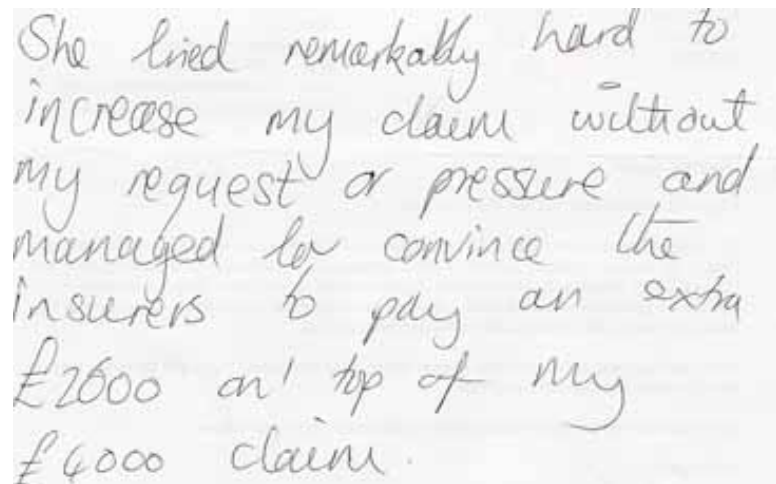 She tried remarkably hard to
increase my claim without
my request or pressure and
managed to convince the
insurers to pay an extra
£2600 on top of my
£6000 claim.